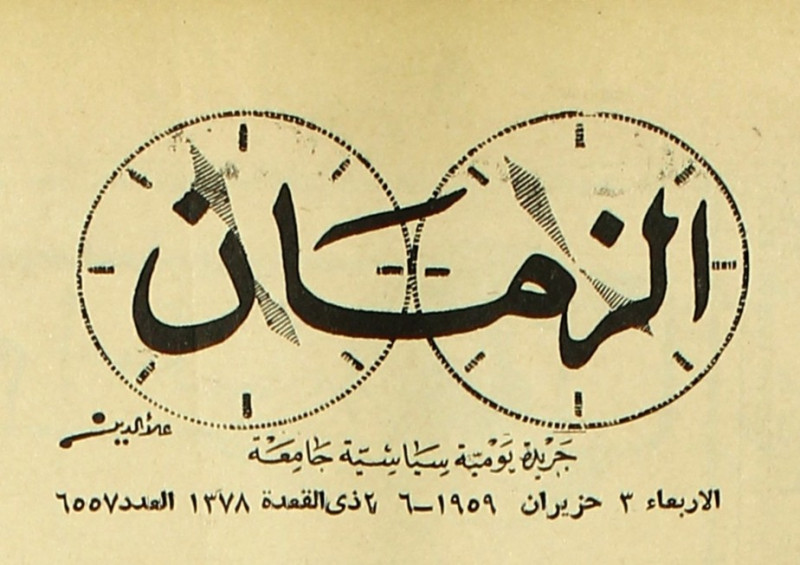 الزمان
علاءالدين
جَرْيدة يَوْميَّة سِيَاسْيَّة جَامِعَة
الاربعاء ٣ حزيران ١٩٥٩–٦ ٢ ذى القعدة ١٣٧٨ العدد ٦٥٥٧